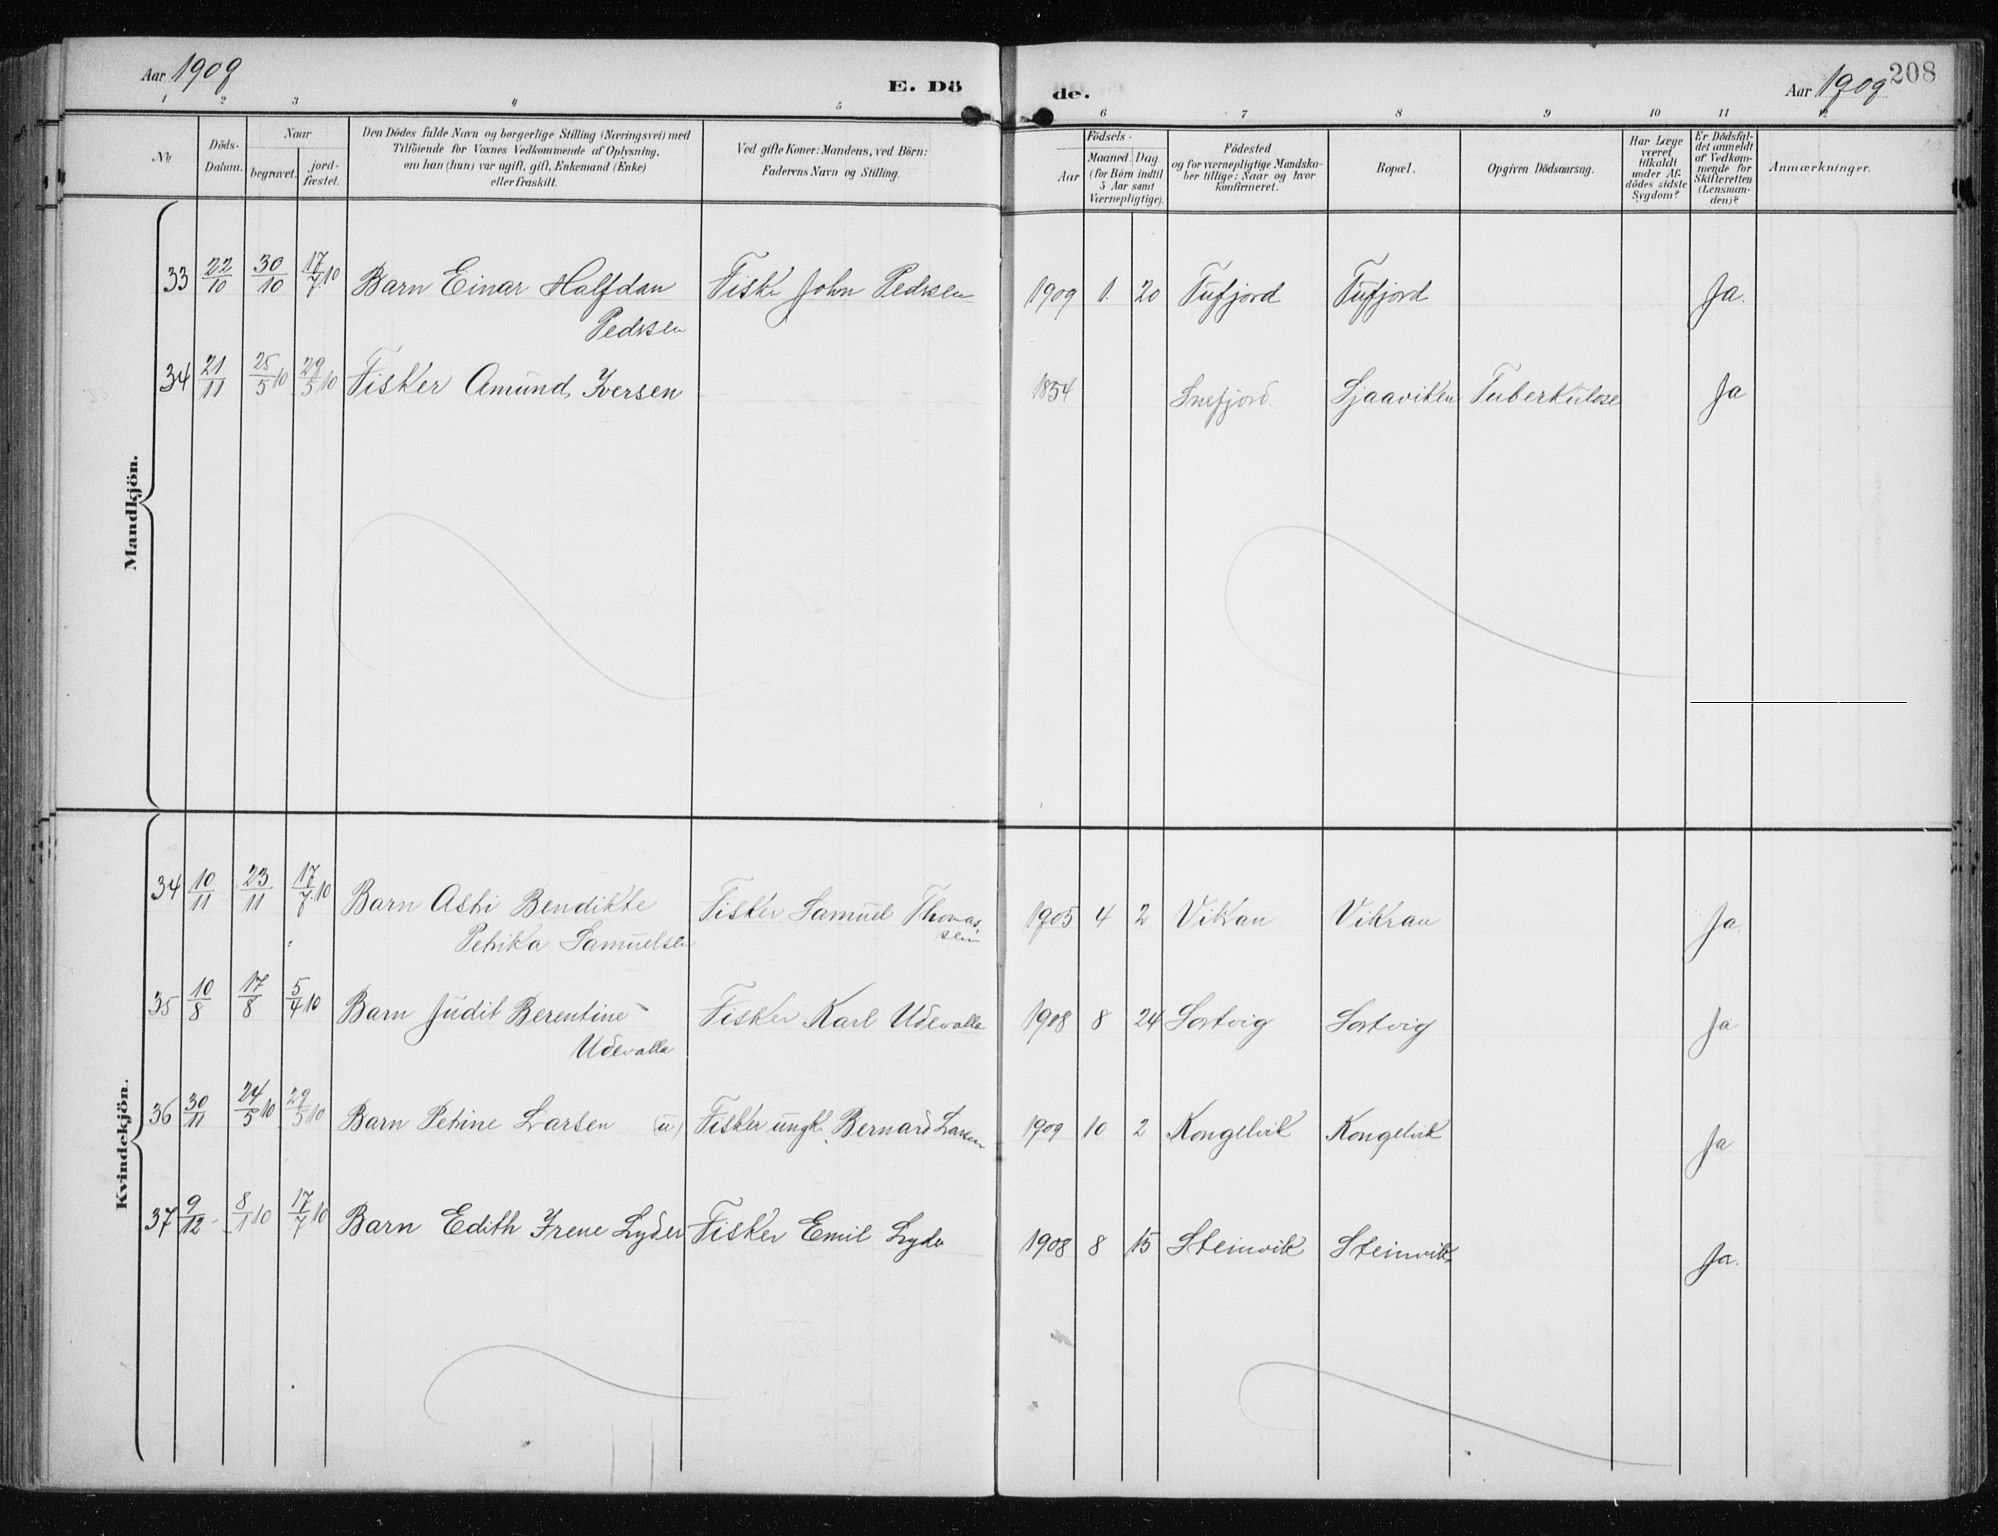 Aar 1909
E. Dö
de.
Aar 1909
208
1 2 3 4 5 6 7 8 9 10 11 12
№
Döds-
Datum.
Naar
begravet.
jord-
fæstet.
Den Dödes fulde Navn og borgerlige Stilling (Næringsvei) med
Tilföiende for Voxnes Vedkommende af Oplysning,
om han (hun) var ugift, gift, Enkemand (Enke)
eller fraskilt.
Ved gifte Koner: Mandens, ved Börn:
Faderens Navn og Stilling.
Födsels-
Aar
Maaned. Dag.
(for Börn indtil
5 Aar samt
Værnepligtige).
Födested
og for værnepligtige Mandska-
ber tillige: Naar og hvor
konfirmeret.
Bopæl.
Opgiven Dödsaarsag.
Har Læge
været
tilkaldt
under Af-
dödes sidste
Sygdom?
Er Dödsfal-
det anmeldt
af Vedkom-
mende for
Skifteretten
(Lensman-
den)?
Anmærkninger.
Mandkjön.
33 22/10 30/10 17/7 10 Barn Einar Halfdan Fisker John Pedersen 1909 1. 20 Tufjord Tufjord Ja.
Pedersen
34 21/11 25/5 10 29/5 10 Fisker Amund Iversen 1854 Snefjord. Sjaaviken Tuberkulose Ja
Kvindekjön.
34 10/11 23/11 17/7 10 Barn Asti Bendikte Fisker Samuel Thomas- 1905 4 2 Vikran Vikran Ja.
Petrika Samuelsen sen
35 10/8 17/8 5/4 10 Barn Judit Berentine Fisker Karl Udevalla 1908 8 24 Sortvig Sortvig Ja
Udevalla
36 30/11 24/5 10 29/5 10 Barn Petrine Larsen (u) Fisker ungk. Bernard Larsen 1909 10 2 Kongelvik Kongelvik Ja
37 9/12 8/1 10 17/7 10 Barn Edith Irene Lyder Fisker Emil Lyder 1908 8 15 Steinvik Steinvik. Ja.